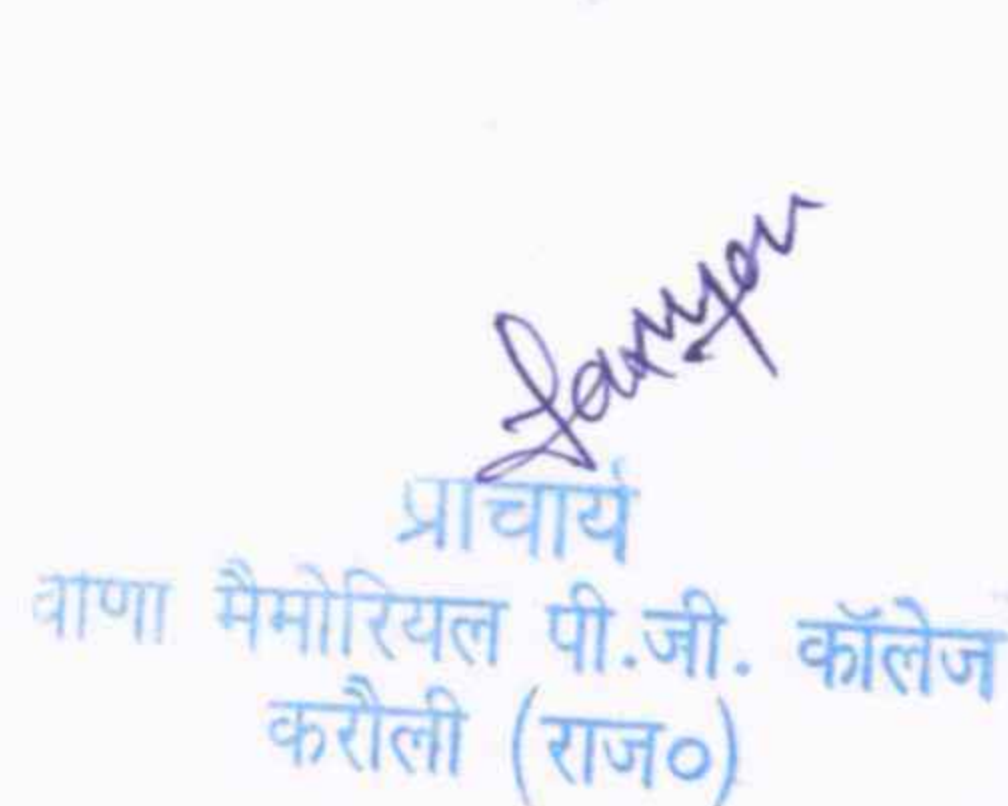 प्राचार्य
वाणा मैमोरियल पी.जी. कॉलेज
करौली (राज०)